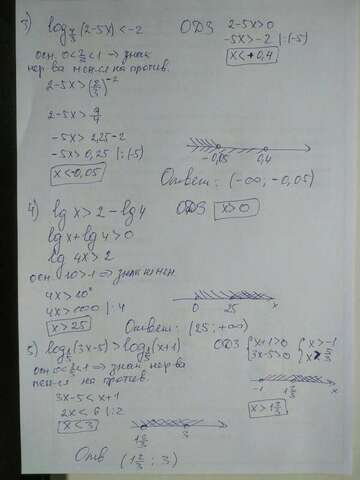 3) log₂/₃(2-5x) < -2 ОДЗ 2-5x>0
-5x>-2 |:(-5)
x<+0,4
осн. 0<2/3<1 ⇒ знак
нер-ва мен-ся на против.
2-5x>(2/3)⁻²
2-5x>9/4
-5x>2,25-2
-5x>0,25 |:(-5)
x<-0,05
-0,05 0,4
Ответ: (-∞; -0,05)
4) lg x > 2 - lg 4 ОДЗ x>0
lg x + lg 4 > 0
lg 4x > 2
осн. 10>1 ⇒ знак не мен.
4x>10²
4x>100 |:4
x>25
0 25 x
Ответ: (25; +∞)
5) log₁/₅(3x-5)>log₁/₅(x+1) ОДЗ { x+1>0 { x>-1
3x-5>0 x>1 2/3
осн. 0<1/5<1 ⇒ знак нер-ва
мен-ся на против.
-1 1 2/3 x
3x-5<x+1
2x<6 |:2
x>1 2/3
x<3
1 2/3 3
Отв (1 2/3; 3)